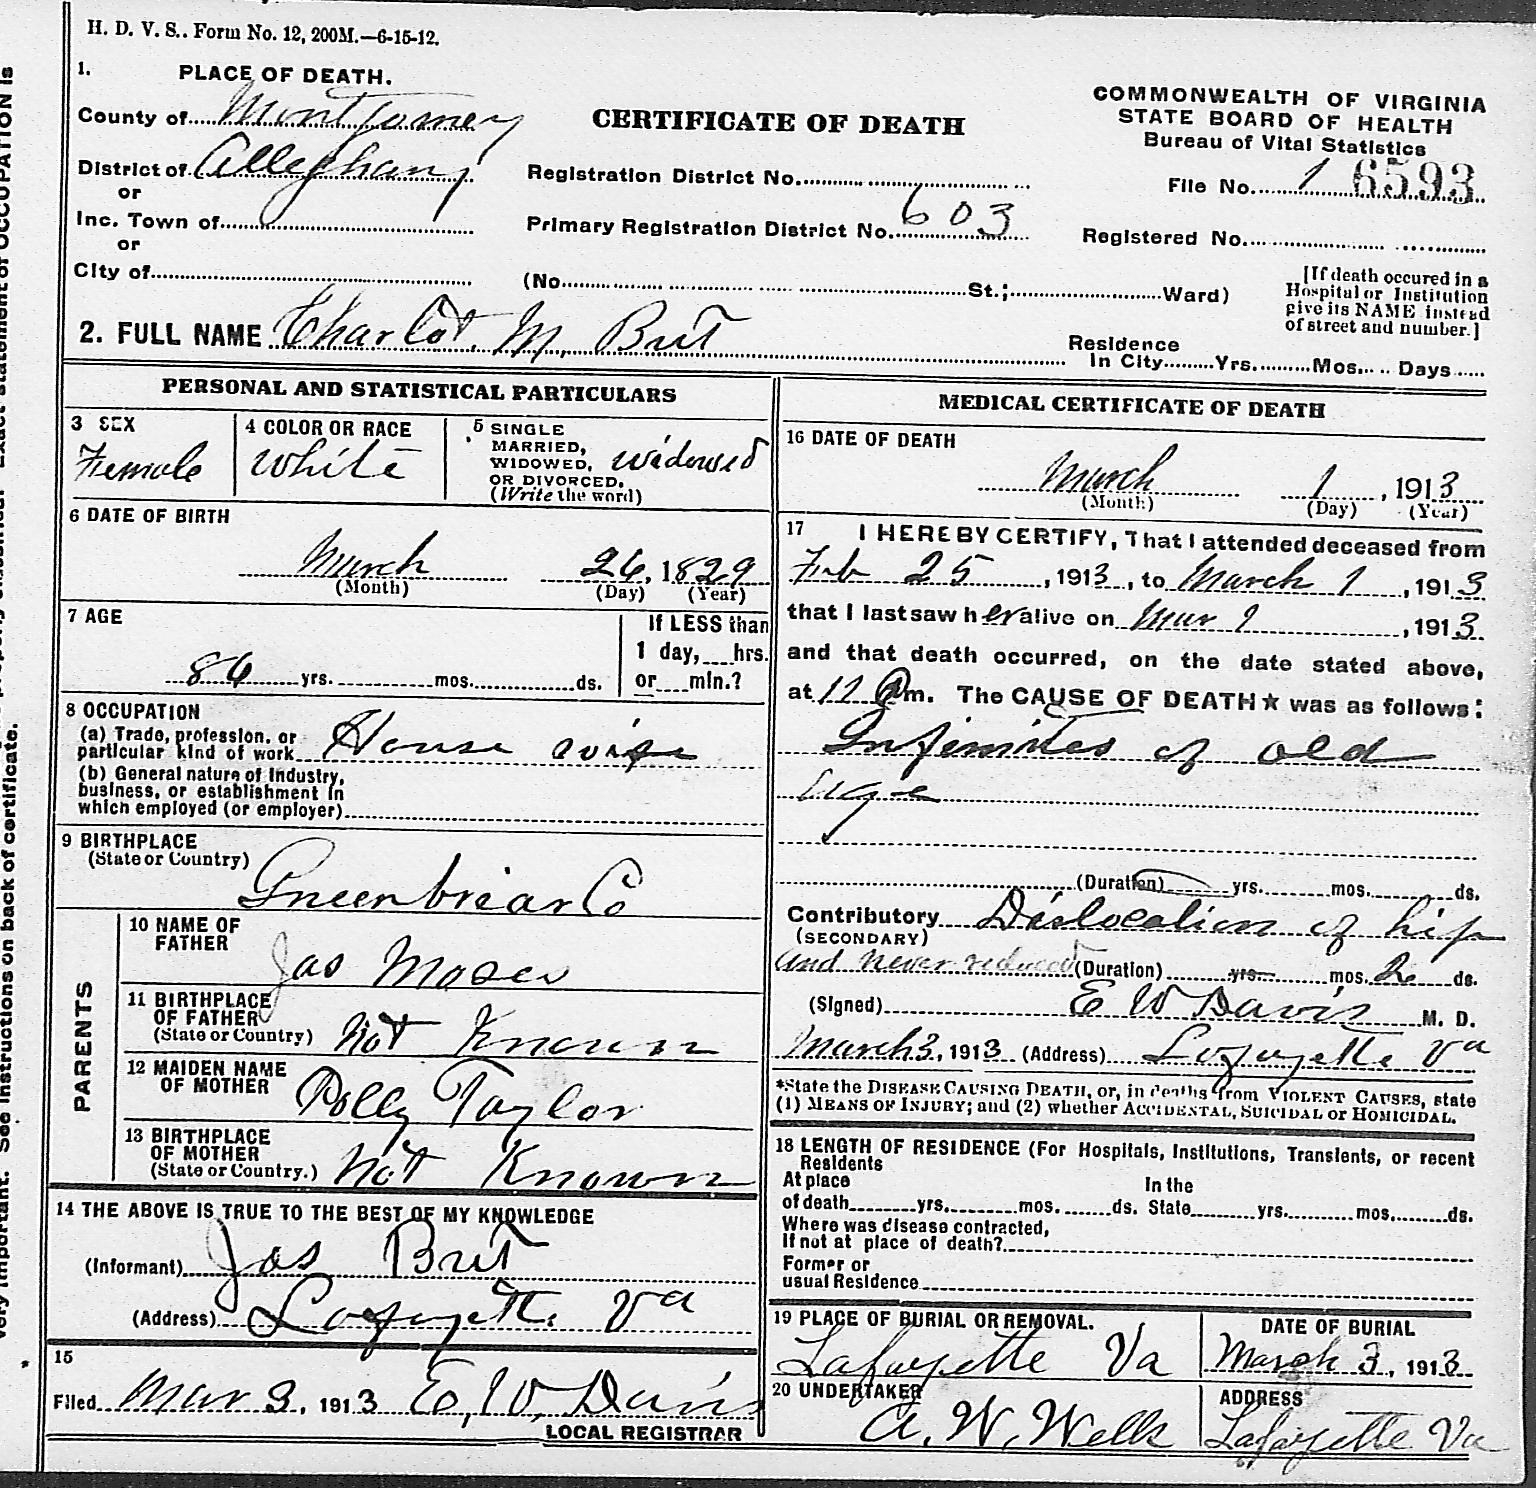 H. D. V. S.. Form No. 12, 200M.—6-15-12.
1. PLACE OF DEATH.
County of Montgomery
District of Alleghany
or
Inc. Town of
or
City of
CERTIFICATE OF DEATH
Registration District No.
Primary Registration District No. 603
(No. St.; Ward)
COMMONWEALTH OF VIRGINIA
STATE BOARD OF HEALTH
Bureau of Vital Statistics
File No. 1 6593
Registered No.
[If death occured in a
Hospital or Institution
give its NAME instead
of street and number.]
2. FULL NAME Charlot. M. Brit
Residence
In City Yrs. Mos. Days
PERSONAL AND STATISTICAL PARTICULARS
3 SEX
Female
4 COLOR OR RACE
White
5 SINGLE
MARRIED,
WIDOWED, widowed
OR DIVORCED.
(Write the word)
6 DATE OF BIRTH
March 26, 1829
(Month) (Day) (Year)
7 AGE
86 yrs. mos. ds.
If LESS than
1 day, hrs.
or min.?
8 OCCUPATION
(a) Trade, profession, or
particular kind of work House wife
(b) General nature of Industry,
business, or establishment in
which employed (or employer)
9 BIRTHPLACE
(State or Country)
Greenbriar Co
PARENTS
10 NAME OF
FATHER
Jas Moses
11 BIRTHPLACE
OF FATHER
(State or Country) Not Known
12 MAIDEN NAME
OF MOTHER Polly Taylor
13 BIRTHPLACE
OF MOTHER
(State or Country.) Not Known
14 THE ABOVE IS TRUE TO THE BEST OF MY KNOWLEDGE
(Informant) Jas Brit
(Address) Lafayette Va
15
Filed Mar 3, 1913 E, W, Davis
LOCAL REGISTRAR
MEDICAL CERTIFICATE OF DEATH
16 DATE OF DEATH
March 1, 1913
(Month) (Day) (Year)
17 I HEREBY CERTIFY, That I attended deceased from
Feb 25, 1913, to March 1, 1913
that I last saw her alive on Mar 1, 1913.
and that death occurred, on the date stated above,
at m. The CAUSE OF DEATH★ was as follows:
Infimites of old
age
(Duration) yrs. mos. ds.
Contributory Dislocation of hip
(SECONDARY)
and never reduced (Duration) yrs. mos. ds.
(Signed) E W Davis M. D.
March 3, 1913 (Address) Lafayette Va
*State the DISEASE CAUSING DEATH, or, in deaths from VIOLENT CAUSES, state
(1) MEANS OF INJURY; and (2) whether ACCIDENTAL, SUICIDAL or HOMICIDAL.
18 LENGTH OF RESIDENCE (For Hospitals, Institutions, Transients, or recent
Residents
At place In the
of death yrs. mos. ds. State yrs. mos. ds.
Where was disease contracted,
If not at place of death?
Former or
usual Residence
19 PLACE OF BURIAL OR REMOVAL.
Lafayette Va
DATE OF BURIAL
March 3, 1913
20 UNDERTAKER
A. W. Wells
ADDRESS
Lafayette Va
very important. See instructions on back of certificate.